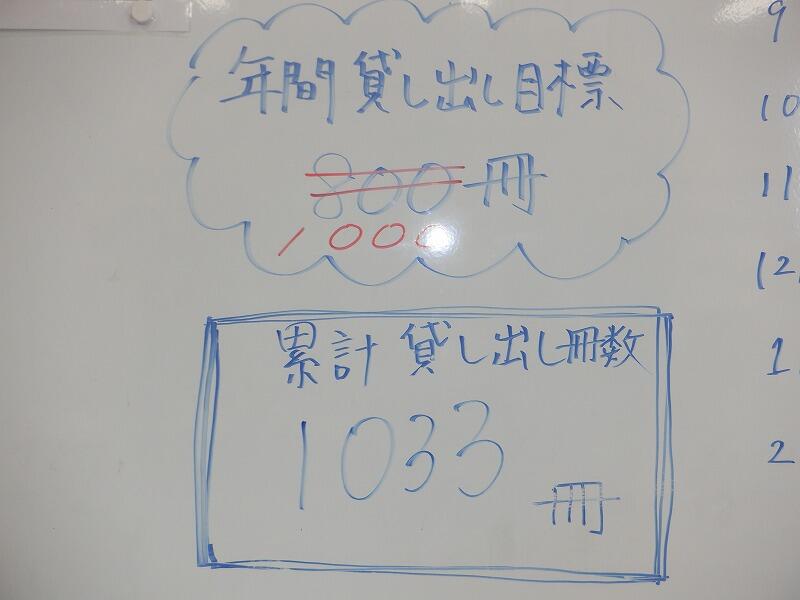 年間貸し出し目標
800冊
1000
累計 貸し出し冊数
1033
冊
9
10
11
12
1
2